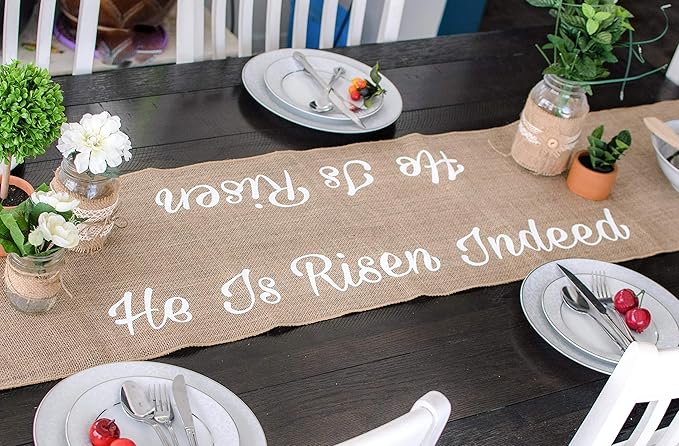 He Is Risen
He Is Risen Indeed